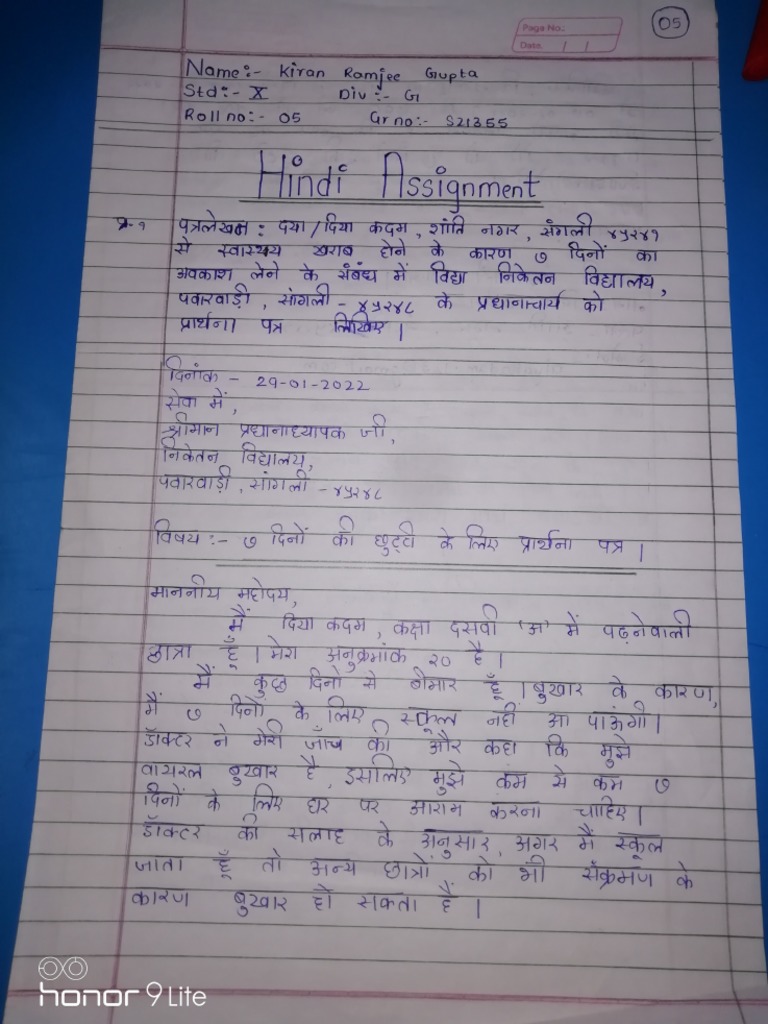 05
Page No.:
Date.
Name:- Kiran Ramjee Gupta
Std:- X Div:- G
Roll no:- 05 Gr no:- S21355
Hindi Assignment
प्र-१ पत्रलेखन : दया/दिया कदम, शांति नगर, संगली ४५२४१
से स्वास्थ्य खराब होने के कारण ७ दिनों का
अवकाश लेने के संबंध में विद्या निकेतन विद्यालय,
पवारवाड़ी, सांगली - ४५२४८ के प्रधानाचार्य को
प्रार्थना पत्र लिखिए।
दिनांक - 29-01-2022
सेवा में,
श्रीमान प्रधानाध्यापक जी,
निकेतन विद्यालय,
पवारवाड़ी, सांगली - ४५२४८
विषय :- ७ दिनों की छुट्टी के लिए प्रार्थना पत्र।
माननीय महोदय,
मैं दिया कदम, कक्षा दसवी 'अ' में पढ़नेवाली
छात्रा हूँ। मेरा अनुक्रमांक २० है।
मैं कुछ दिनो से बीमार हूँ। बुखार के कारण,
मैं ७ दिनों के लिए स्कूल नहीं आ पाऊंगी।
डॉक्टर ने मेरी जाँच की और कहा कि मुझे
वायरल बुखार है, इसलिए मुझे कम से कम ७
दिनों के लिए घर पर आराम करना चाहिए।
डॉक्टर की सलाह के अनुसार, अगर मैं स्कूल
जाता हूँ तो अन्य छात्रों को भी संक्रमण के
कारण बुखार हो सकता है।
honor 9 Lite